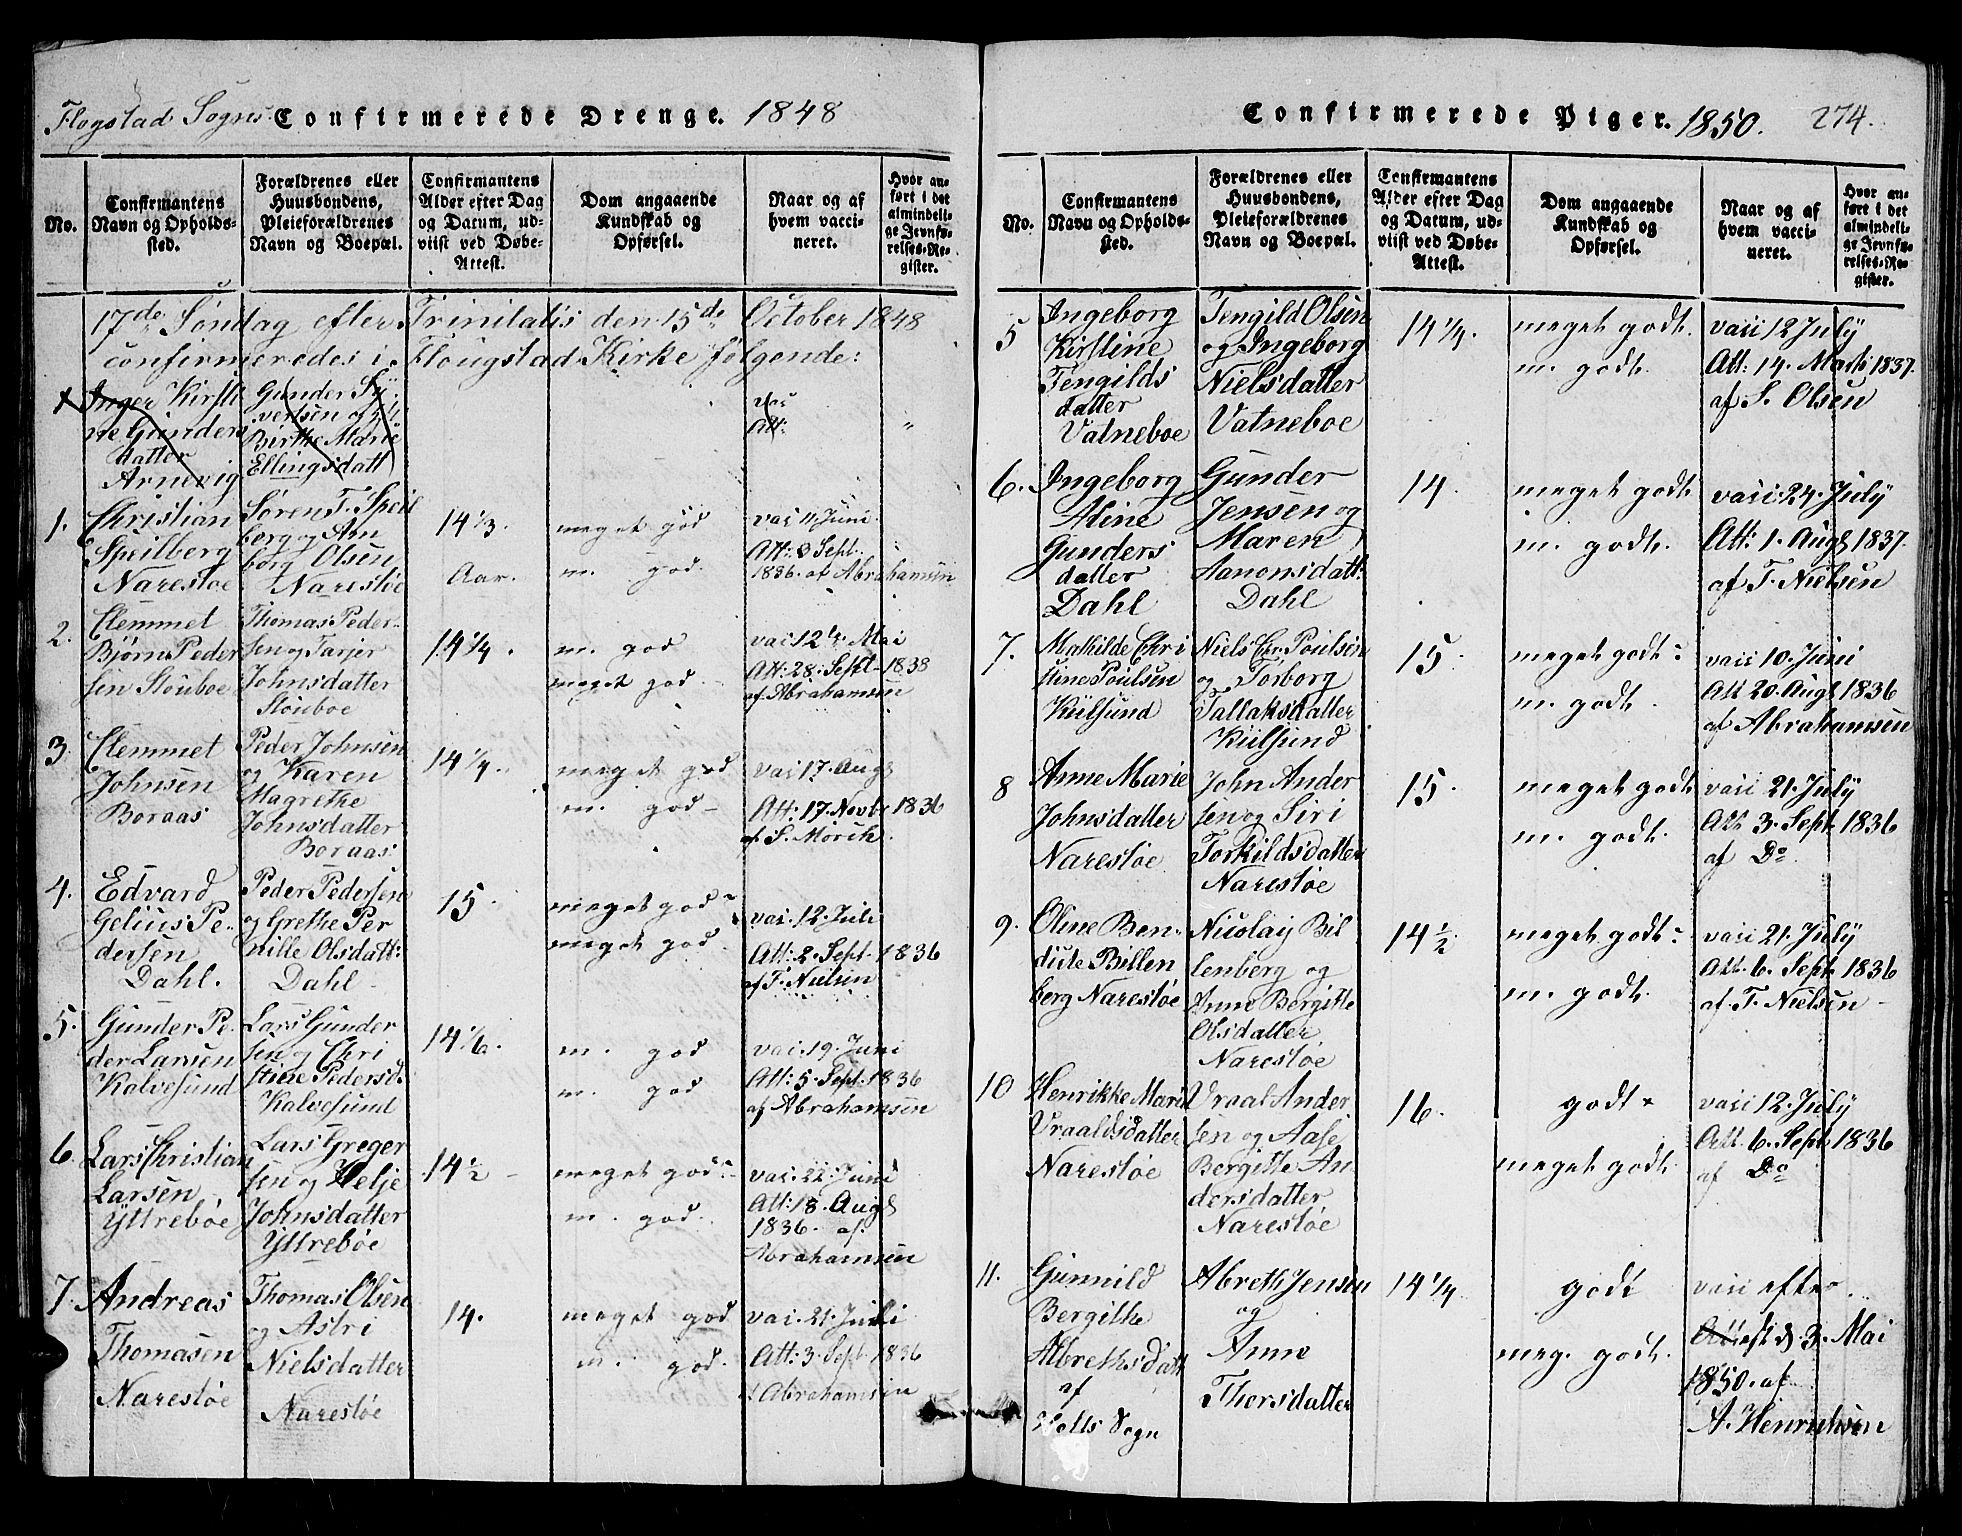 Flogstad Sogns Confirmerede Drenge. 1848
No.
Confirmantens Navn og Opholdssted.
Forældrenes eller Huusbondens, Pleieforældrenes Navn og Boepæl.
Confirmantens Alder efter Dag og Datum, udviist ved Døbe-Attest.
Dom angaaende Kundskab og Opførsel.
Naar og af hvem vaccineret.
Hvor anført i det almindelige Jevnførelses-Register.
17de Søndag efter Trinitatis den 15de October 1848
confirmeredes i Flougstad Kirke følgende:
Inger Kirsti
ne Gunders
datter
Arnevig
Gunder Sy
versen og
Birthe Marie
Ellingsdatt
vac
Att:
"
1.
Christian
Speilberg
Narestøe
Søren T. Speil
berg og An
borg Olsen
Narestøe
14 1/3.
Aar.
meget god
m. god.
vac 11 Juni
Att: 8 Sept.
1836. af Abrahamsen
2.
Clemmet
Bjørn Peder
sen Stouboe
Thomas Peder-
sen og Tarjer
Johnsdatter
Stouboe
14 1/4.
m. god
meget god.
vac 12te Mai
Att: 28. Sept 1838
af Abrahamsen
3.
Clemmet
Johnsen
Boraas
Peder Johnsen
og Karen
Magrethe
Johnsdatter
Boraas.
14 1/4.
meget god
m. god
vac 17. Aug
Att: 17. Novbr 1836
af S. Mörch.
4.
Edvard
Gelius Pe-
dersen
Dahl.
Peder Pedersen
og Grethe Per
nille Olsdatt:
Dahl
15.
meget god
meget god.
vac. 12. Juli
Att: 2. Sept. 1836
af T. Nielsen
5.
Gunder Pe-
der Larsen
Kalvesund
Lars Gunder
sen og Chri
stine Pedersd.
Kalvesund
14 1/6.
m. god
m. god
vac. 19. Juni
Att: 5. Sept. 1836
af Abrahamsen
6.
Lars Christian
Larsen
Yttrebøe
Lars Greger
sen og Helje
Johnsdatter
Yttrebøe
14 1/2
meget god
m. god.
vac. 22. Juni
Att: 18. Aug
1836. af.
Abrahamsen
7.
Andreas
Thomasen
Narestøe
Thomas Olsen
og Astri
Nielsdatter
Narestøe
14.
meget god
m. god.
vac. 21. Juli
Att: 3. Sept. 1836
Abrahamsen
Confirmerede Piger. 1850. 274.
No.
Confirmantens Navn og Opholdssted.
Forældrenes eller Huusbondens, Pleieforældrenes Navn og Boepæl.
Confirmantens Alder efter Dag og Datum, udviist ved Døbe-Attest.
Dom angaaende Kundskab og Opførsel.
Naar og af hvem vaccineret.
Hvor anført i det almindelige Jevnførelses-Register.
5
Ingeborg
Kirstine
Tengilds
datter
Vatneboe
Tengild Olsen
og Ingeborg
Nielsdatter
Vatneboe
14 1/4.
meget godt.
m. godt.
vacc 12 July
Att: 14. Marts 1837.
af S. Olsen
6.
Ingeborg
Aline
Gunders
datter
Dahl
Gunder
Jensen og
Maren
Aanonsdatt:
Dahl
14.
meget godt
m. godt.
vacc. 24. July
Att: 1. Aug 1837.
af T. Nielsen
7.
Mathilde Chri
stine Poulsen
Kiilsund
Niels Chr. Poulsen
og Torborg
Tallaksdatter
Kiilsund
15.
meget godt
m. godt.
vacc 10. Juni
Att 20. Aug 1836
af Abrahamsen
8
Anne Marie
Johnsdatter
Narestøe
John Ander
sen og Siri
Torkildsdatter
Narestøe
15.
meget godt
m. godt.
vacc 21. July
Att 3. Sept 1836
af Do
9.
Oline Ben-
dicte Billen
berg Narestøe
Nicolay Bil
lenberg og
Anne Bergitte
Olsdatter
Narestøe
14 1/2
meget godt
m. godt.
vacc 21. July
Att. 6. Sept 1836
af T. Nielsen
10
Henrikke Marie
Vraaldsdatter
Narestøe
Vraal Ander
sen og Aase
Bergitte An
dersdatter
Narestøe
16.
godt
meget godt.
vacc 12. July
Att 6. Sept 1836
af Do
11.
Gunnild
Bergithe
Albrethsdatt
af
Holts Sogn
Abreth Jensen
og
Anne
Thorsdatter
14 1/4
godt
meg. godt.
vacc efter
Attest d 3. Mai
1850. af
A. Henrichsen